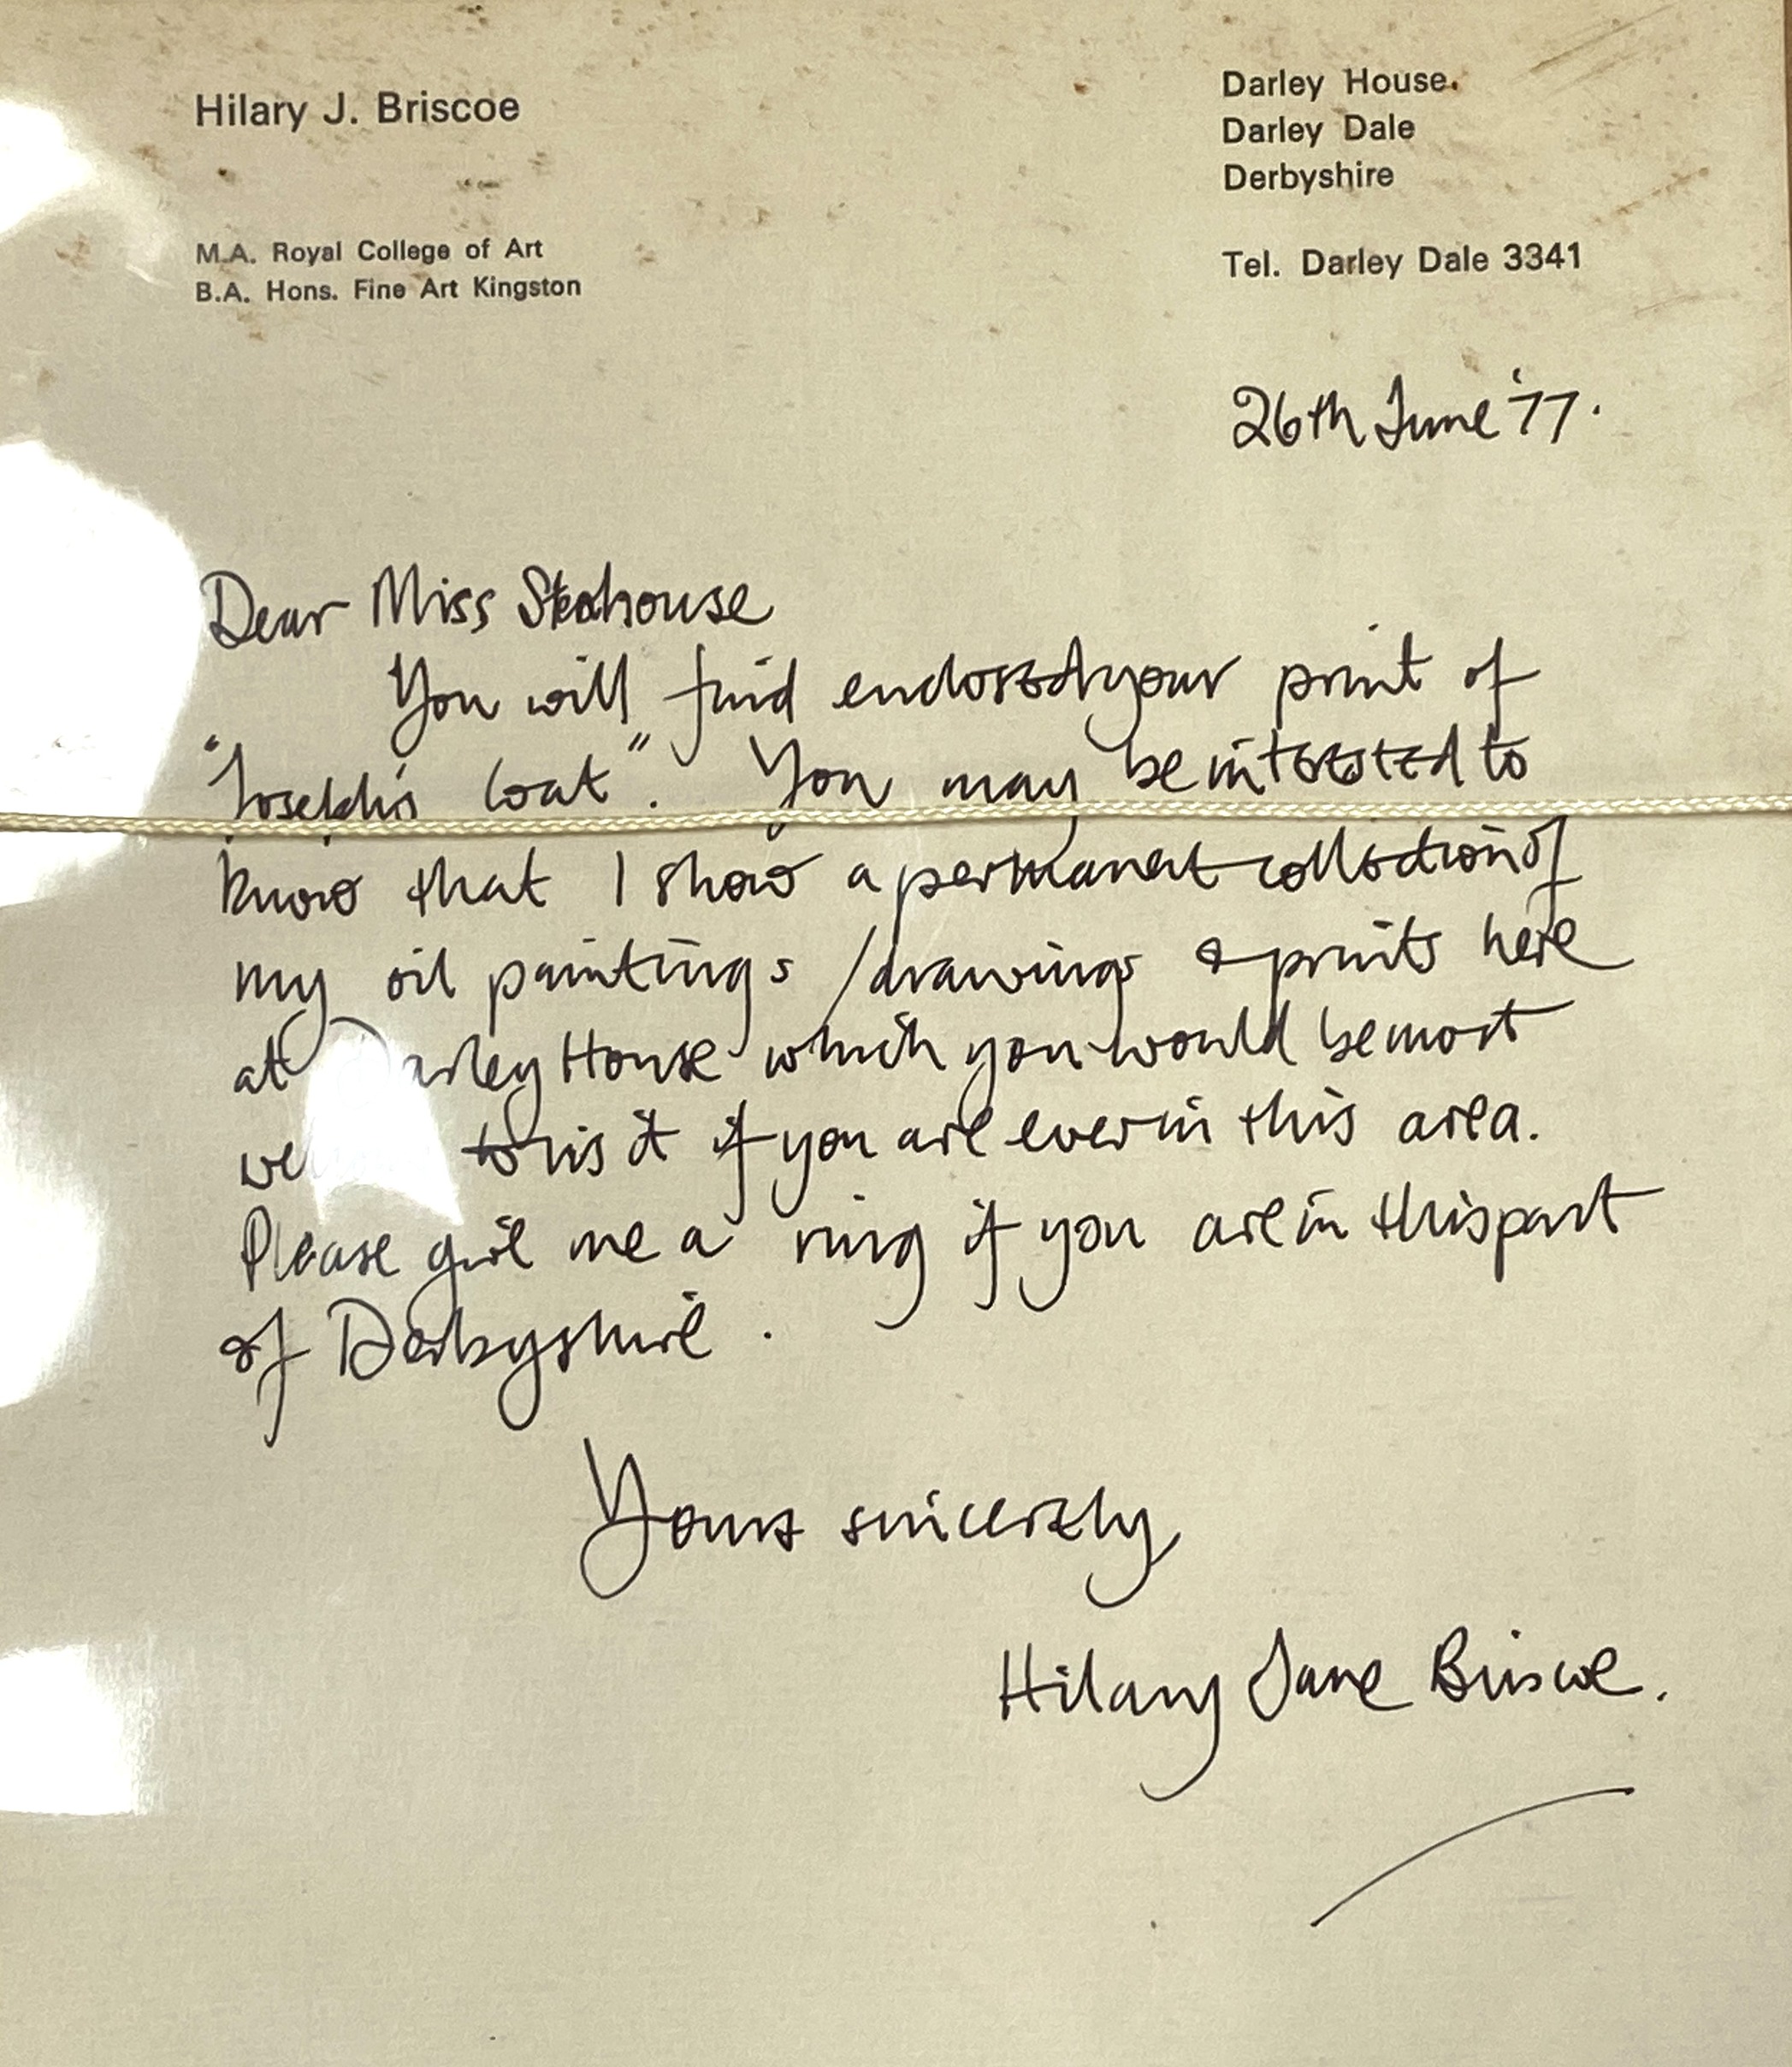 Hilary J. Briscoe
M.A. Royal College of Art
B.A. Hons. Fine Art Kingston
Darley House
Darley Dale
Derbyshire
Tel. Darley Dale 3341
26th June '77.
Dear Miss
You will find enclosed your print of
"Joseph's Coat". You may be interested to
know that I show a permanent collection of
my oil paintings / drawings & prints here
at Darley House which you would be most
to visit if you are ever in this area.
Please give me a ring if you are in this part
of Derbyshire.
Yours sincerely
Hilary Jane Briscoe.